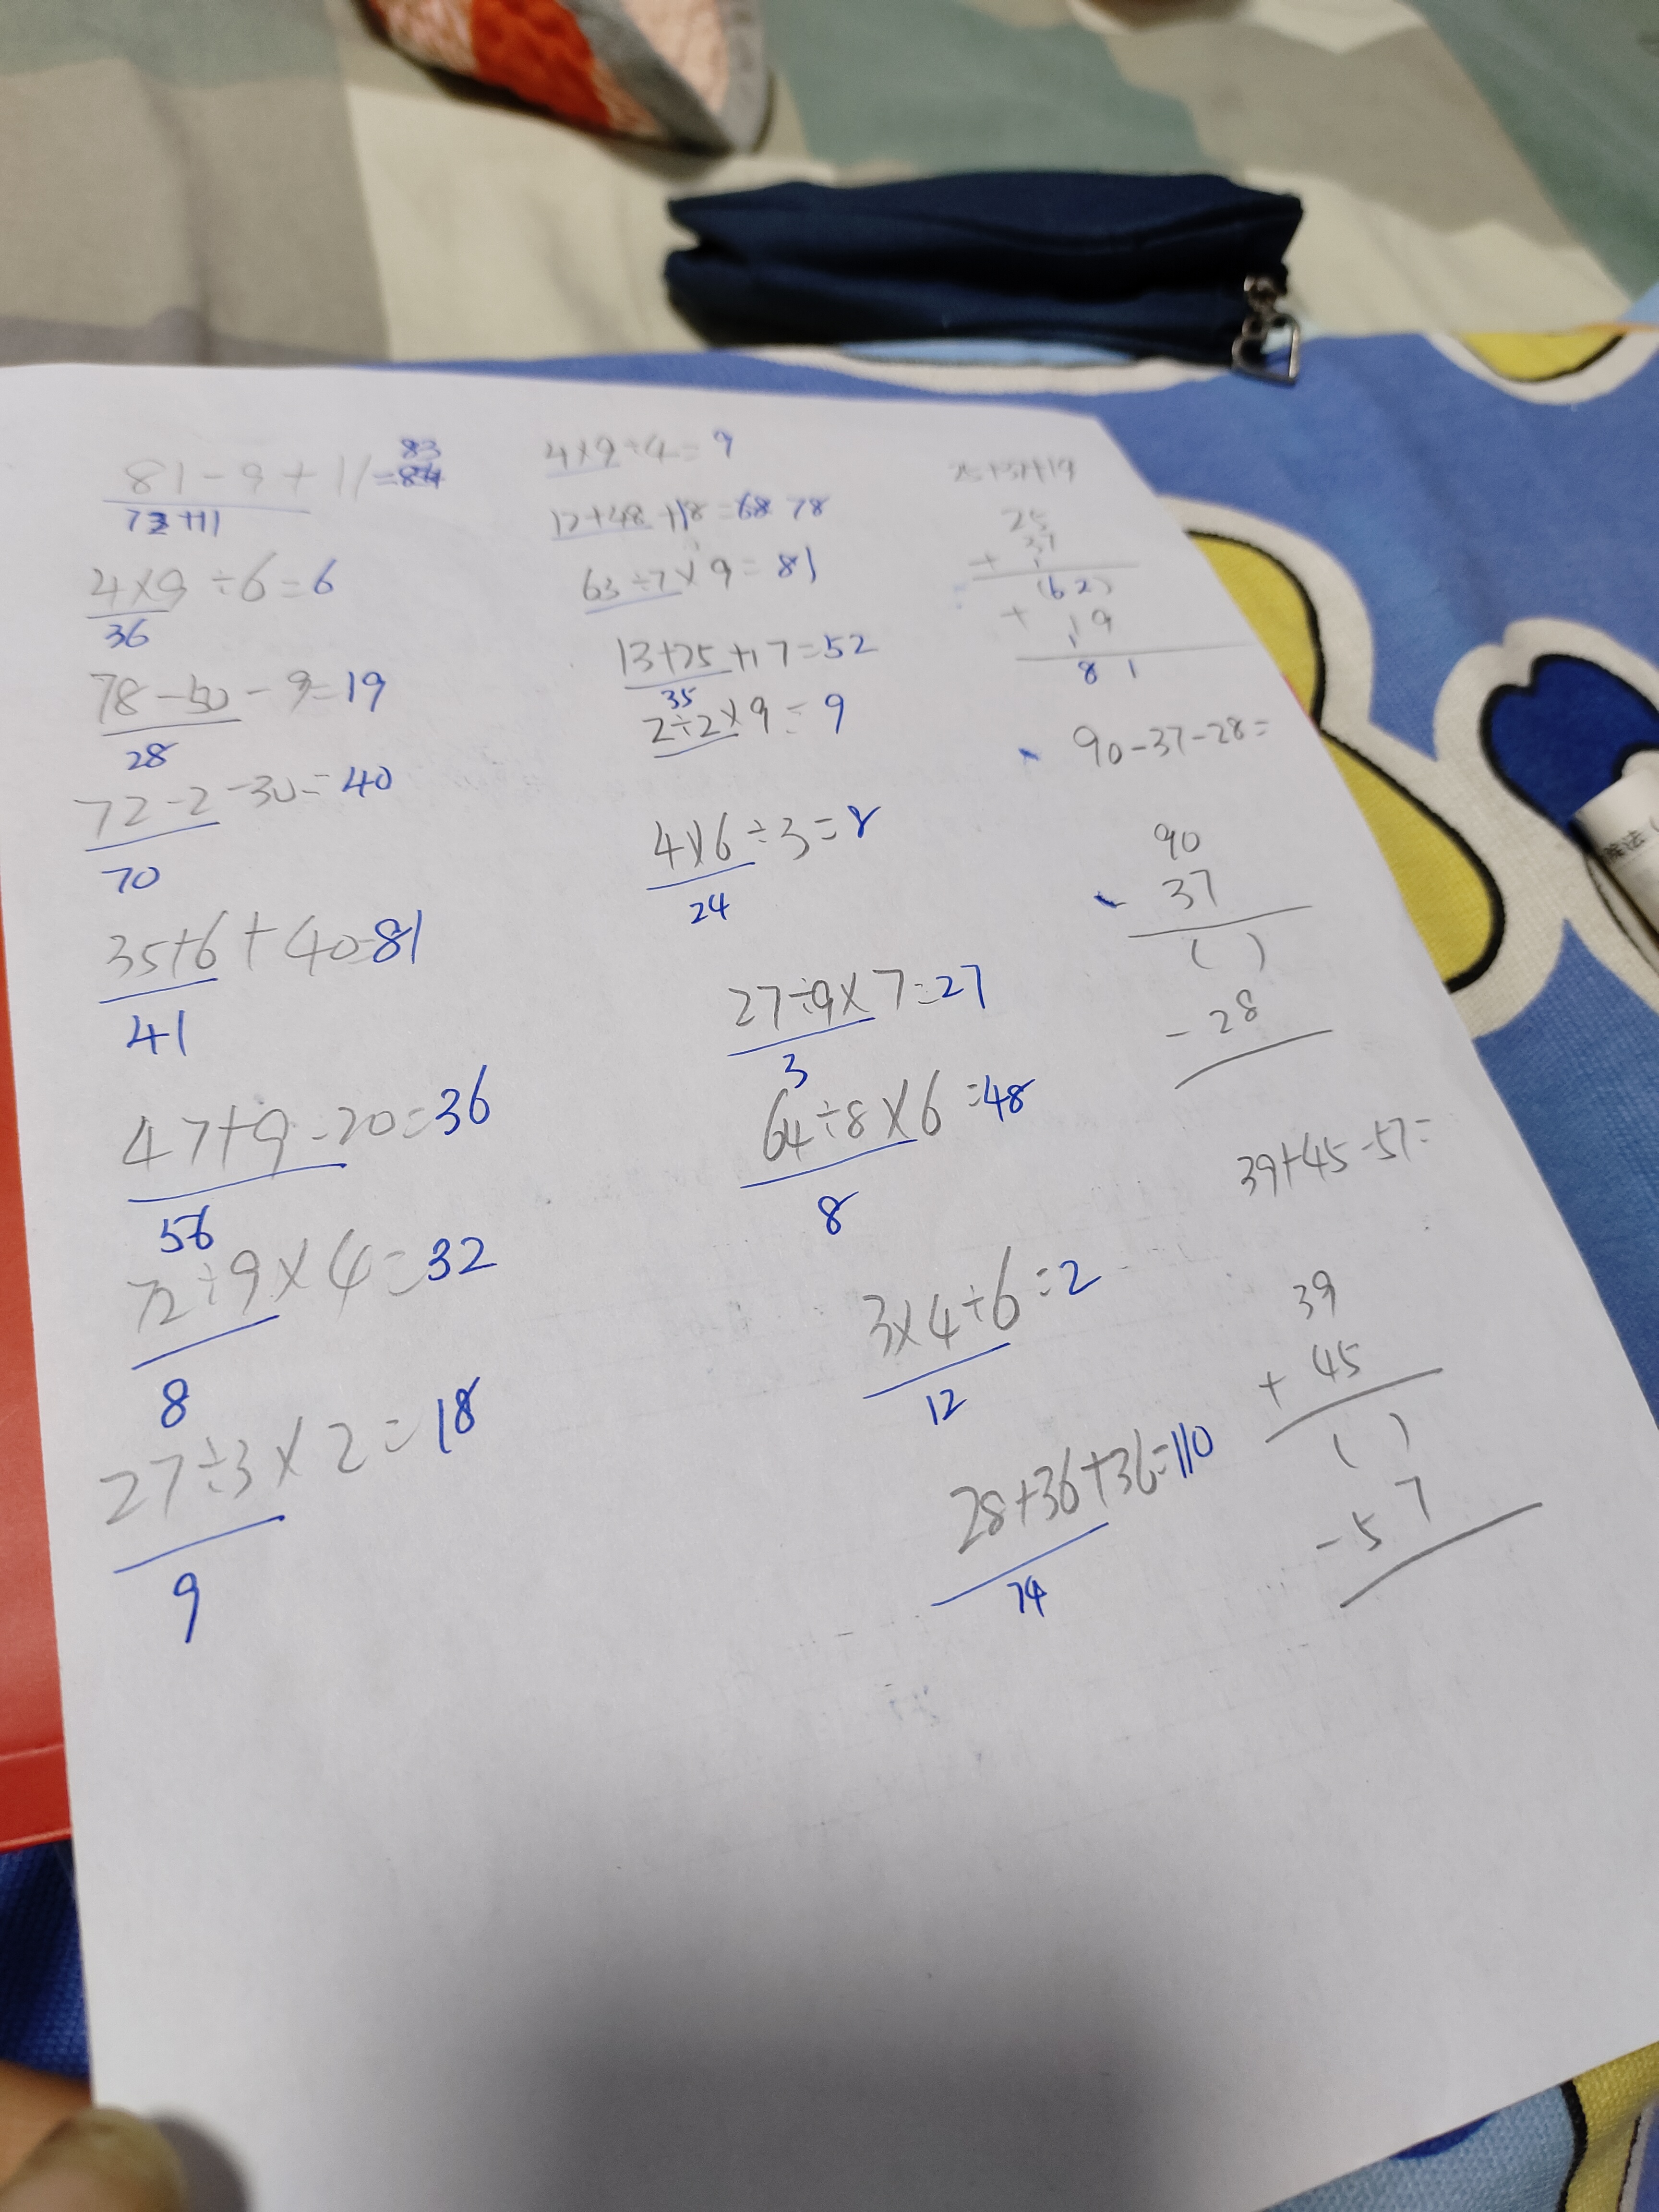 81-9+11=84
83
72+11
4×9÷6=6
36
78-50-9=19
28
72-2-30=40
70
35+6+40=81
41
47+9-20=36
56
72÷9×4=32
8
27÷3×2=18
9
4×9÷4=9
12+48+18=68 78
63÷7×9=81
13+25+17=52
35
2÷2×9=9
4×6÷3=8
24
27÷9×7=27
3
64÷8×6=48
8
3×4÷6=2
12
28+36+36=110
74
25+37+19
25
+ 37
(62)
+ 19
81
90-37-28=
90
- 37
( )
- 28
39+45-57=
39
+ 45
( )
- 57